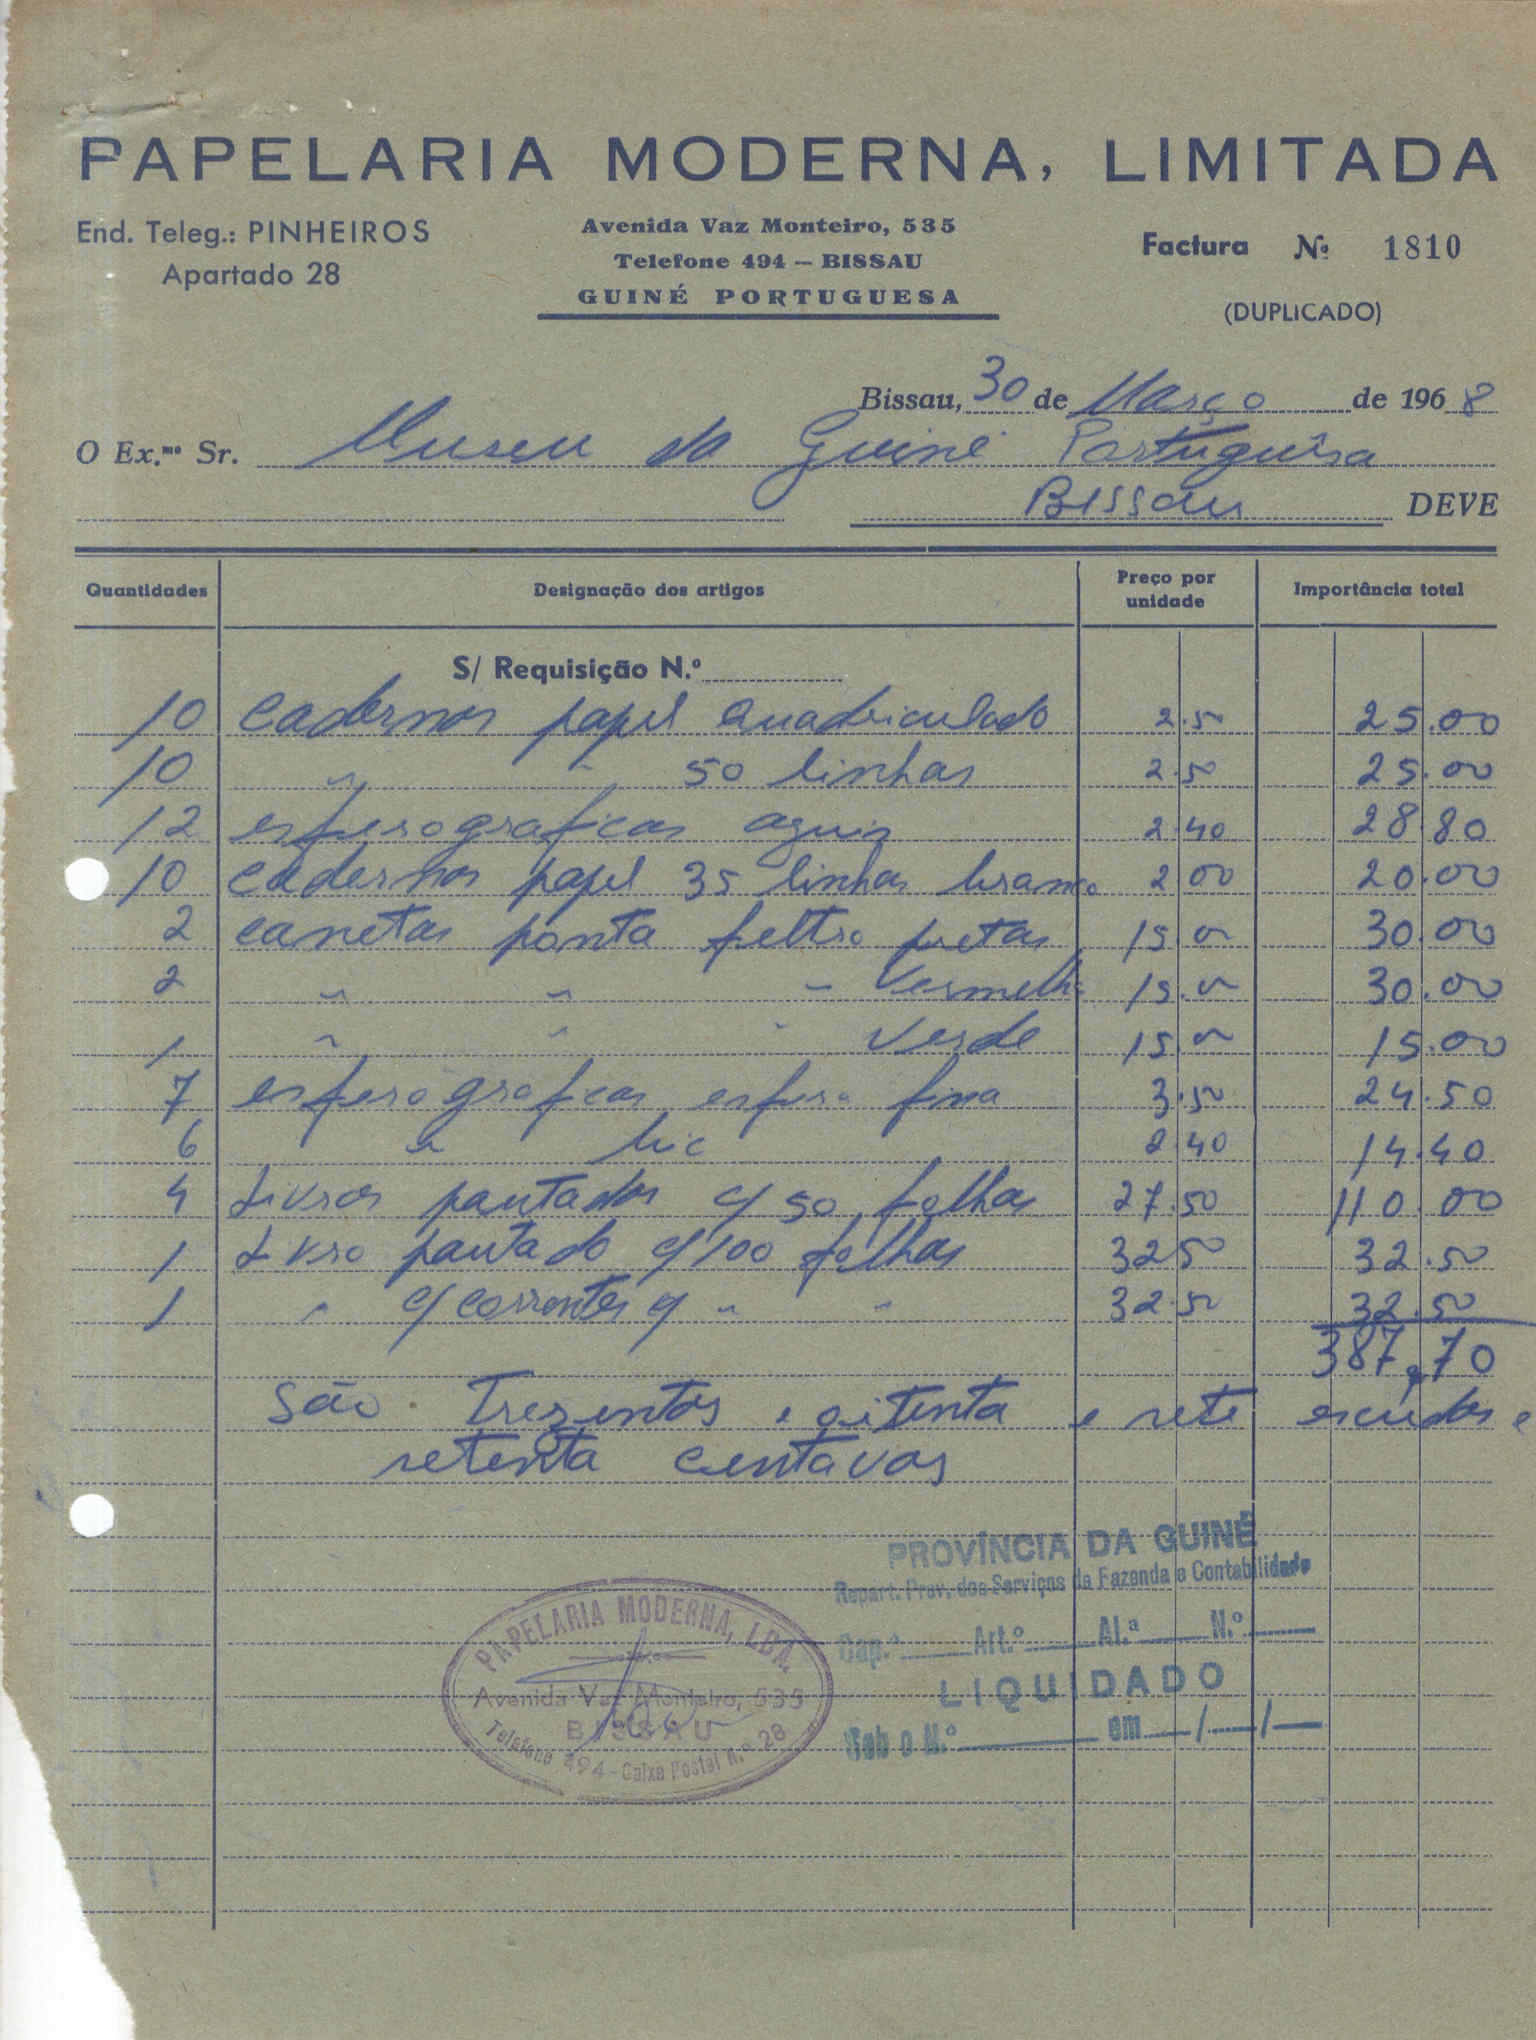 PAPELARIA MODERNA, LIMITADA
End. Teleg.: PINHEIROS
Apartado 28
Avenida Vaz Monteiro, 535
Telefone 494 — BISSAU
GUINÉ PORTUGUESA
Factura Nº 1810
(DUPLICADO)
Bissau, 30 de Março de 1968
O Ex.mo Sr. Museu da Guiné Portuguêsa
Bissau DEVE
Quantidades Designação dos artigos Preço por unidade Importância total
S/ Requisição N.º
10 cadernos papel quadriculado 2.50 25.00
10 " " 50 linhas 2.50 25.00
12 esferograficas aguia 2.40 28.80
10 cadernos papel 35 linhas branco 2 00 20.00
2 canetas ponta feltro pretas 15.00 30.00
2 " " " vermelha 15.00 30.00
1 " " " verde 15.00 15.00
7 esferograficas esfera fina 3.50 24.50
6 " bic 2.40 14.40
4 Livros pautados c/ 50 folhas 27.50 110.00
1 Livro pautado c/ 100 folhas 32 50 32.50
1 " c/ correntes c/ " " 32.50 32.50
387,70
São Trezentos e oitenta e sete escudos e
setenta centavos
PROVÍNCIA DA GUINÉ
Repart. Prov. dos Serviços da Fazenda e Contabilidade
Cap.º Art.º Al.ª N.º
LIQUIDADO
Sob o N.º em / /
PAPELARIA MODERNA, LDA.
Avenida Vaz Monteiro, 535
BISSAU
Telefone 494 - Caixa Postal N.º 28